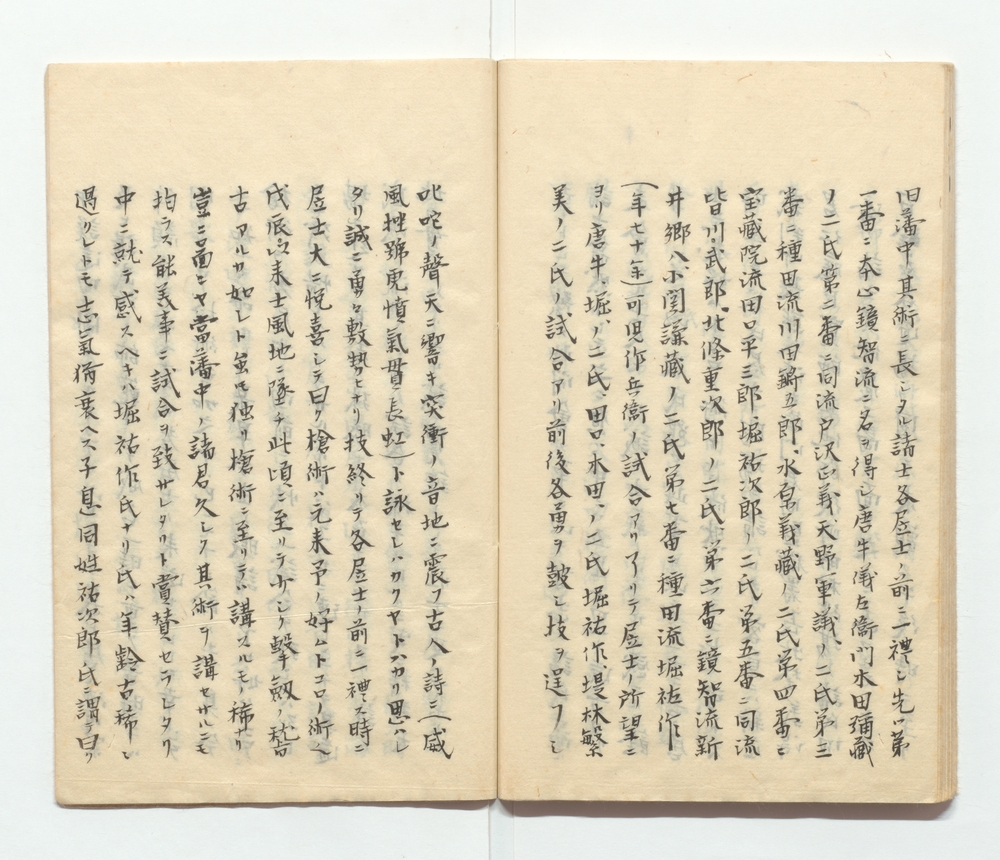 旧藩中其術ニ長シタル諸士各居士ノ前ニ一禮シ先ツ第
一番ニ本心鏡智流ニ名ヲ得シ唐牛儀左衞門水田彌藏
ノ二氏第二番ニ同流戸沢正義天野軍議ノ二氏第三
番ニ種田流川田鏘五郎、水泉義藏ノ二氏第四番ニ
宝藏院流田口平三郎、堀祐次郎ノ二氏第五番ニ同流
皆川武郎、北條重次郎ノ二氏、第六番ニ鏡智流新
井郷八小関謙藏ノ二氏第七番ニ種田流堀祐作
(年七十年)可児作兵衞ノ試合アリアリテ居士ノ所望ニ
ヨリ唐牛、堀、ノ二氏、田口、水田、ノ二氏堀祐作、堤林繁
美ノ二氏ノ試合アリ前後各勇ヲ皷シ技ヲ逞フシ
叱咤ノ聲天ニ響キ突衝ノ音地ニ震フ古人ノ詩ニ(威
風挫號鬼憤氣貫長虹)ト詠セシハカクヤトハカリ思ハレ
タリ誠ニ勇々敷勢ヒナリ技終リテ各居士ノ前ニ一禮ス時ニ
居士大ニ悦喜シテ曰ク槍術ハ元来予ノ好ムトコロノ術今
戊辰以来士風地ニ墜チ此頃ニ至リテ少シク撃劔ノ稽
古アルカ如シト虽モ独リ槍術ニ至リテハ講スルモノ稀ナリ
豈ニ啚ニヤ當藩中ノ諸君久シク其術ヲ講セサルニモ
拘ラス能美事ニ試合ヲ致サレタリト賞賛セラレタリ
中ニ就テ感スヘキハ堀祐作氏ナリ氏ハ年齡古稀ニ
過リレトモ志氣猶衰ヘス子息同姓祐次郎氏ニ謂テ曰ク